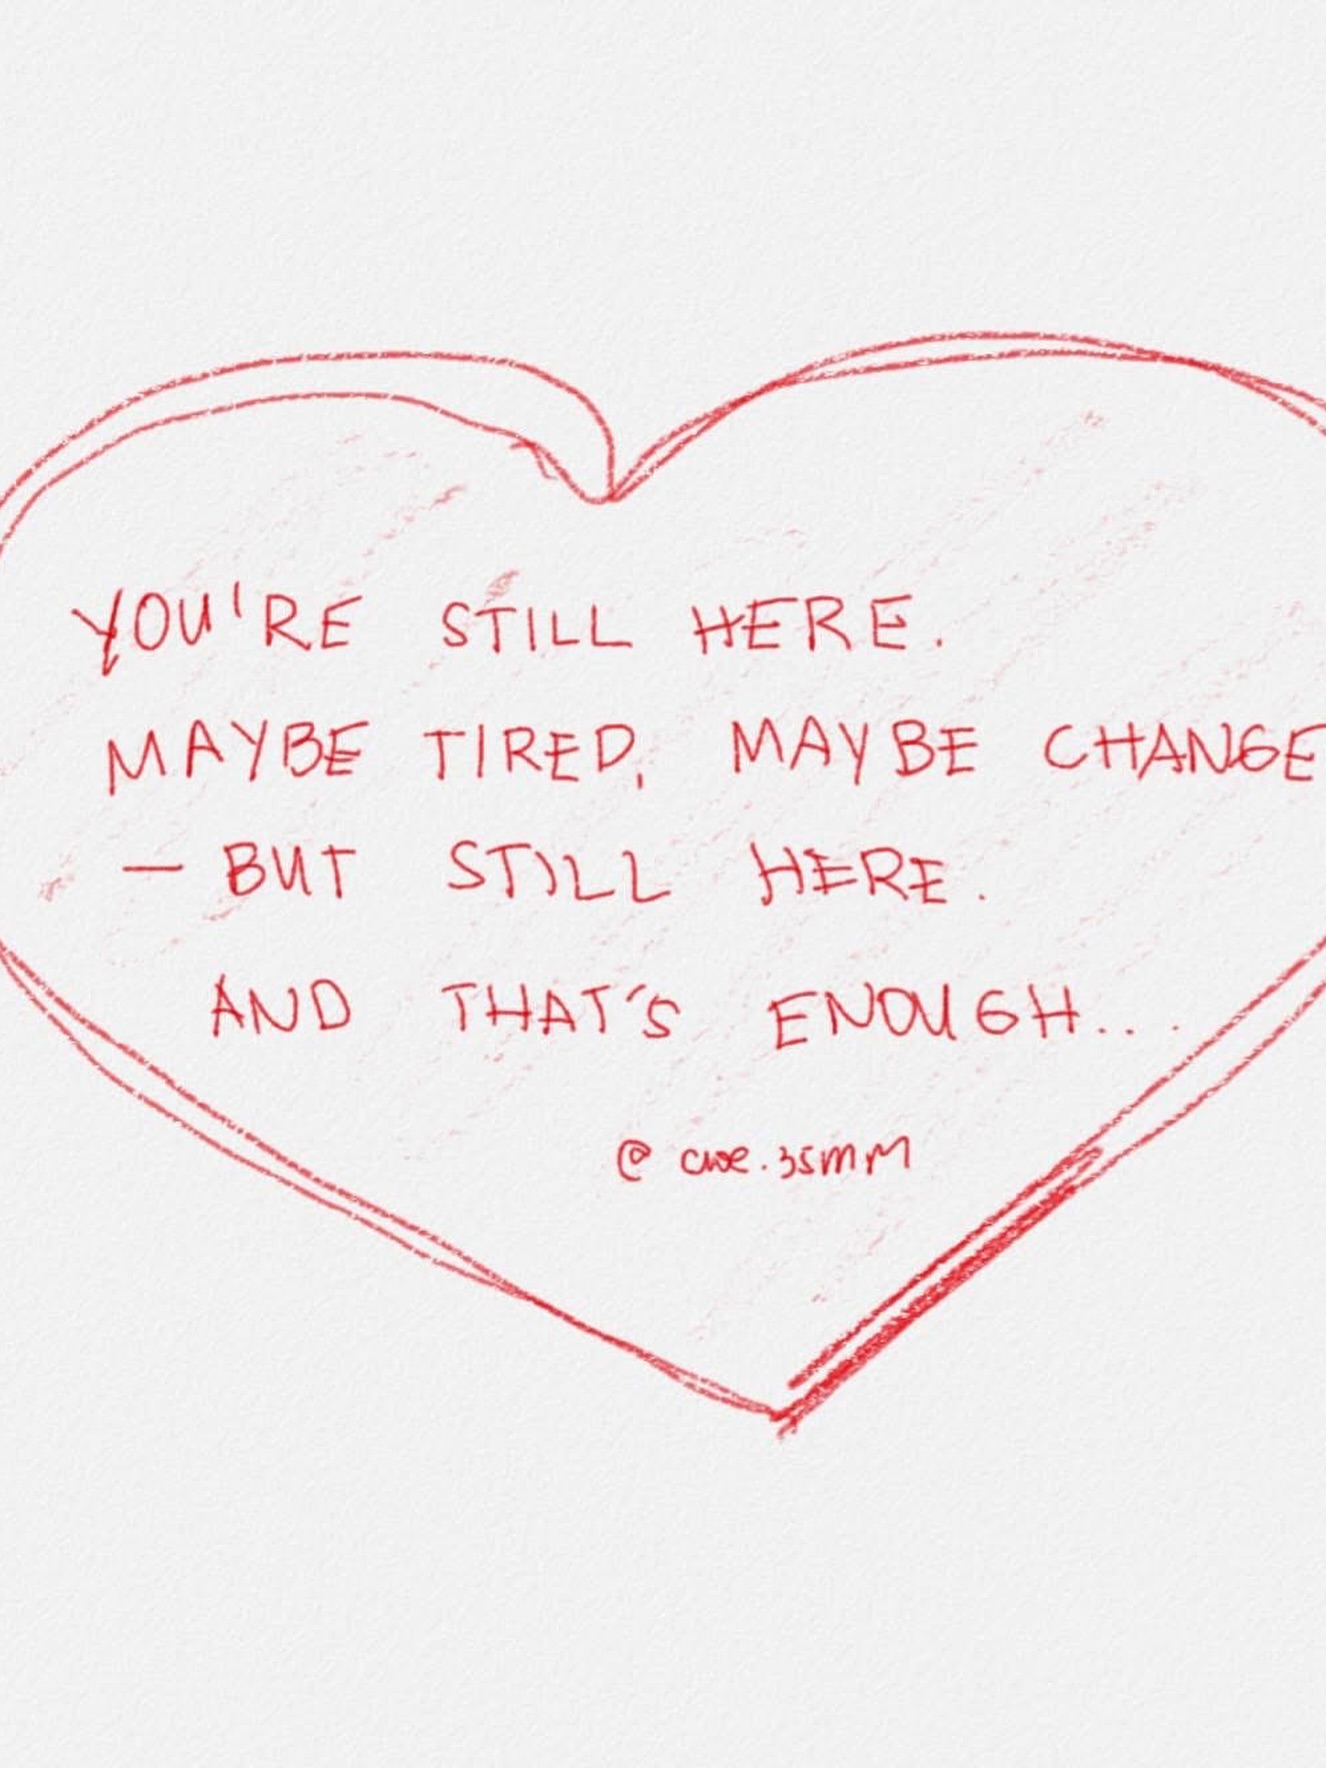 YOU'RE STILL HERE.
MAYBE TIRED, MAYBE CHANGE
— BUT STILL HERE.
AND THAT'S ENOUGH...